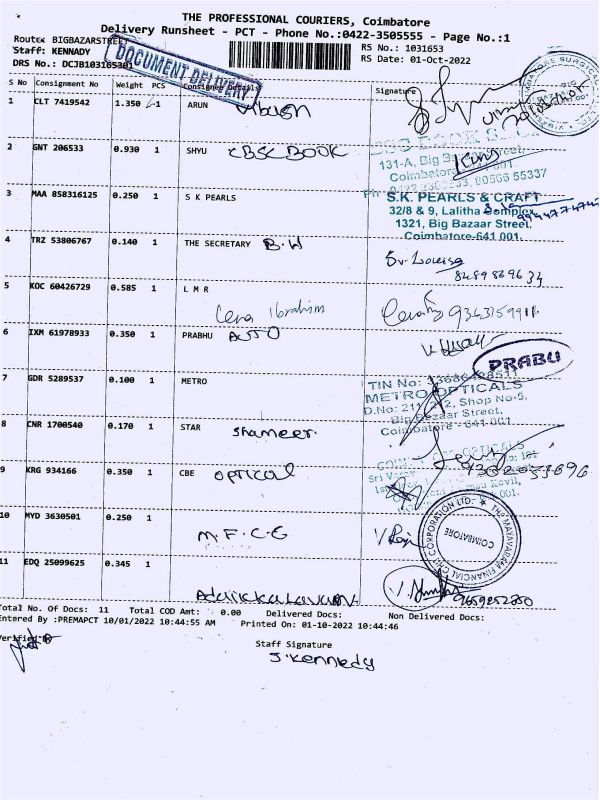 THE PROFESSIONAL COURIERS, Coimbatore
Delivery Runsheet - PCT - Phone No.:0422-3505555 - Page No.:1
Route: BIGBAZARSTREET
RS No.: 1031653
Staff: KENNADY
RS Date: 01-Oct-2022
DRS No.: DCJB103165301
DOCUMENT DELIVERY
S No Consignment No Weight PCS Consignee Details Signature
1 CLT 7419542 1.350 1 ARUN
2 GNT 206533 0.930 1 SHYU CBSC BOOK
131-A, Big Bazaar Street,
Coimbatore 641 001.
80566 55337
3 MAA 858316125 0.250 1 S K PEARLS
S.K. PEARLS & CRAFT
32/8 & 9, Lalitha Complex
1321, Big Bazaar Street,
Coimbatore-641 001.
4 TRZ 53806767 0.140 1 THE SECRETARY B.W
Sr. Louisa
8489869634
5 KOC 60426729 0.585 1 L M R
Ibrahim
6 IXM 61978933 0.350 1 PRABHU AUTO
PRABU
7 GDR 5289537 0.100 1 METRO
METRO OPTICALS
Shop No-5,
Big Bazaar Street,
Coimbatore - 641 001
8 CNR 1700540 0.170 1 STAR Shameer.
9 KRG 934166 0.350 1 CBE OPTICAL
10 MYD 3630501 0.250 1
M.F.C.G
THE MAYAVARAM FINANCIAL CHIT CORPORATION LTD.
COIMBATORE
11 EDQ 25099625 0.345 1
Total No. Of Docs: 11 Total COD Amt: 0.00 Delivered Docs: Non Delivered Docs:
Entered By :PREMAPCT 10/01/2022 10:44:55 AM Printed On: 01-10-2022 10:44:46
Verified By
Staff Signature
J.Kennedy